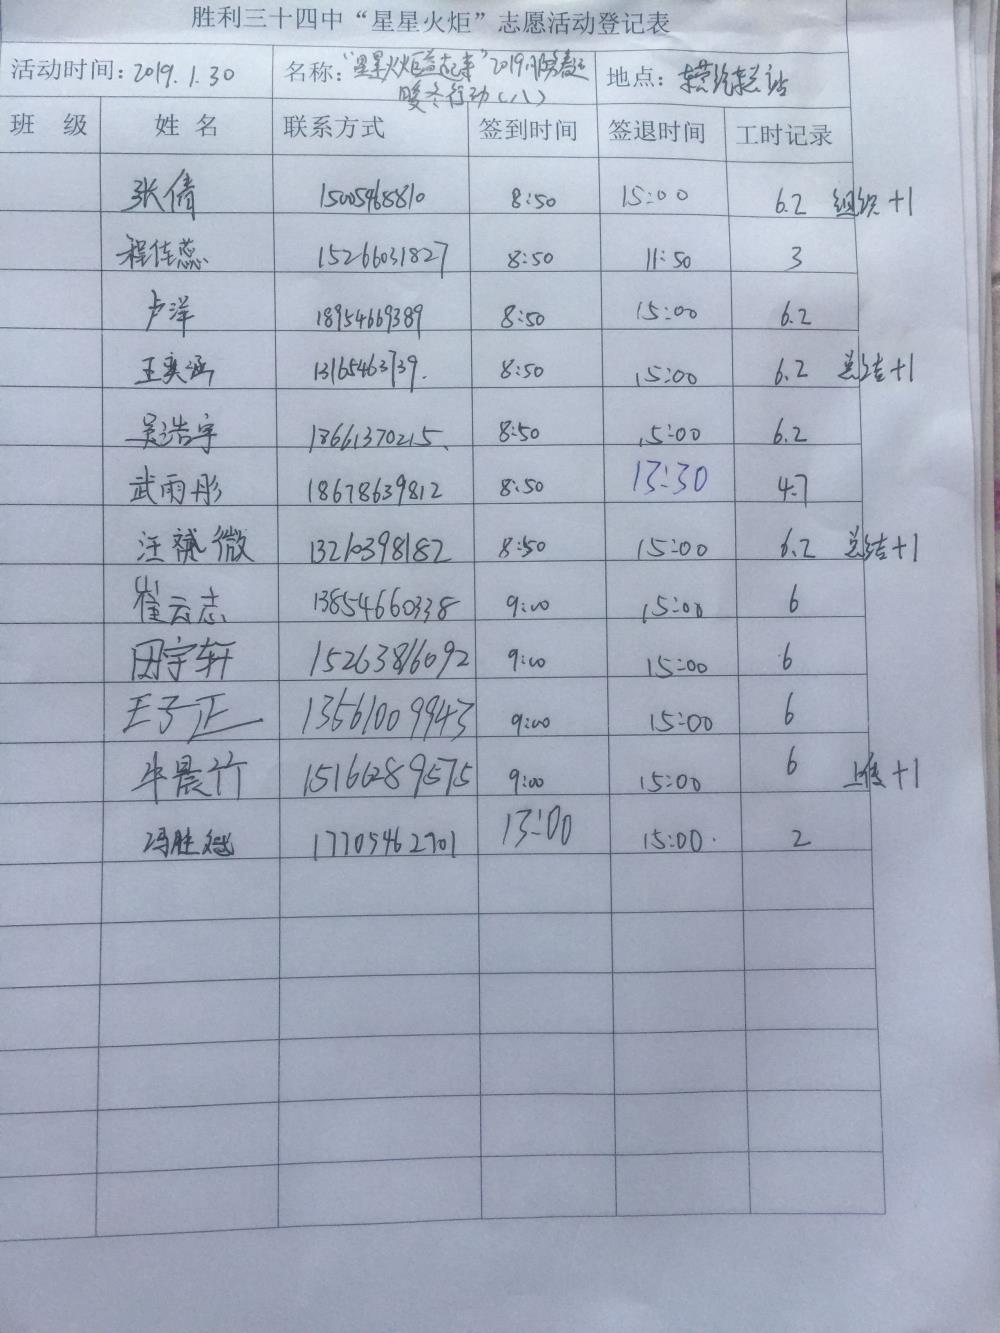 胜利三十四中“星星火炬”志愿活动登记表
活动时间：2019.1.30 名称：“星星火炬益起来”2019 地点：东营汽车总站
暖冬行动（八）
班 级 姓 名 联系方式 签到时间 签退时间 工时记录
张倩 15005468810 8:50 15:00 6.2 组织+1
程佳蕊 15266031827 8:50 11:50 3
卢洋 18954669389 8:50 15:00 6.2
王奕涵 13165463739. 8:50 15:00 6.2 总结+1
吴浩宇 18661370215、 8:50 15:00 6.2
武雨彤 18678639812 8:50 13:30 4.7
汪 微 13210398182 8:50 15:00 6.2 总结+1
崔云志 13854660338 9:00 15:00 6
田宇轩 15263816092 9:00 15:00 6
王子正 13561009943 9:00 15:00 6
牛晨竹 15166289575 9:00 15:00 6 +1
冯胜 17705462701 13:00 15:00. 2